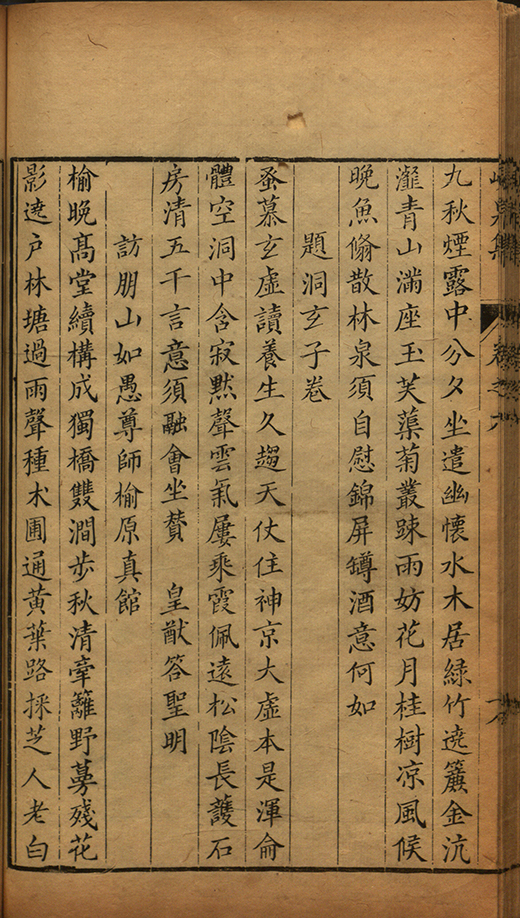 九秋煙露中分夕坐遣幽懷水木居綠竹遶簾金沆
瀣青山滿座玉芙蕖菊叢踈雨妨花月桂樹凉風候
晚魚翛散林泉須自慰錦屏罇酒意何如
題洞玄子卷
蚤慕玄虛讀養生久趨天仗住神京大虛本是渾侖
體空洞中含寂默聲雲氣屢乘霞佩遠松陰長護石
房清五千言意須融會坐贊　皇猷答聖明
訪朋山如愚尊師榆原真館
榆晚髙堂續構成獨橋雙澗步秋清牽籬野蔓殘花
影遶户林塘過雨聲種术圃通黄葉路採芝人老白